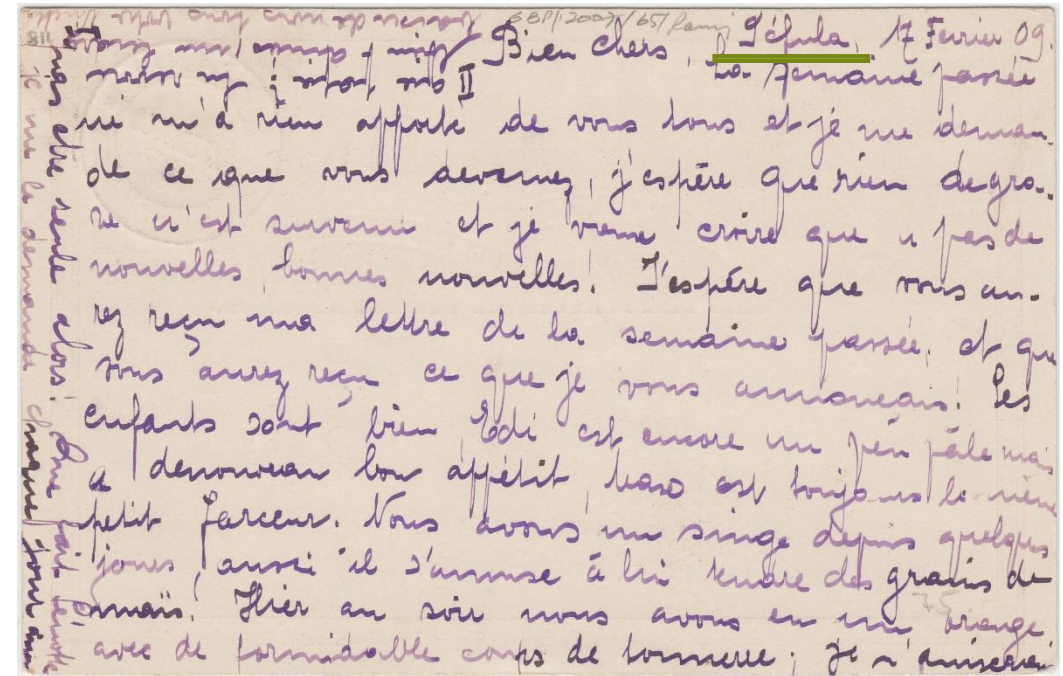 Bien chers, 17 Février 09.
La semaine passée
ne m'a rien apporté de vous tous et je me deman-
de ce que vous devenez, j'espère que rien de gra-
ve n'est survenu et je veux croire que " pas de
nouvelles, bonnes nouvelles! J'espère que vous au-
rez reçu ma lettre de la semaine passée, et que
vous aurez reçu ce que je vous annonçais! Les
enfants sont bien, Edi est encore un peu pâle mais
a denouveau bon appétit, est toujours le même
petit farceur. Nous avons un singe depuis quelques
jours, aussi il s'amuse à lui tendre des grains de
maïs! Hier au soir nous avons eu un orage
avec de formidable coups de tonnerre; je n'
pas être seule alors! Que fait
je me le demande chaque jour
811
75